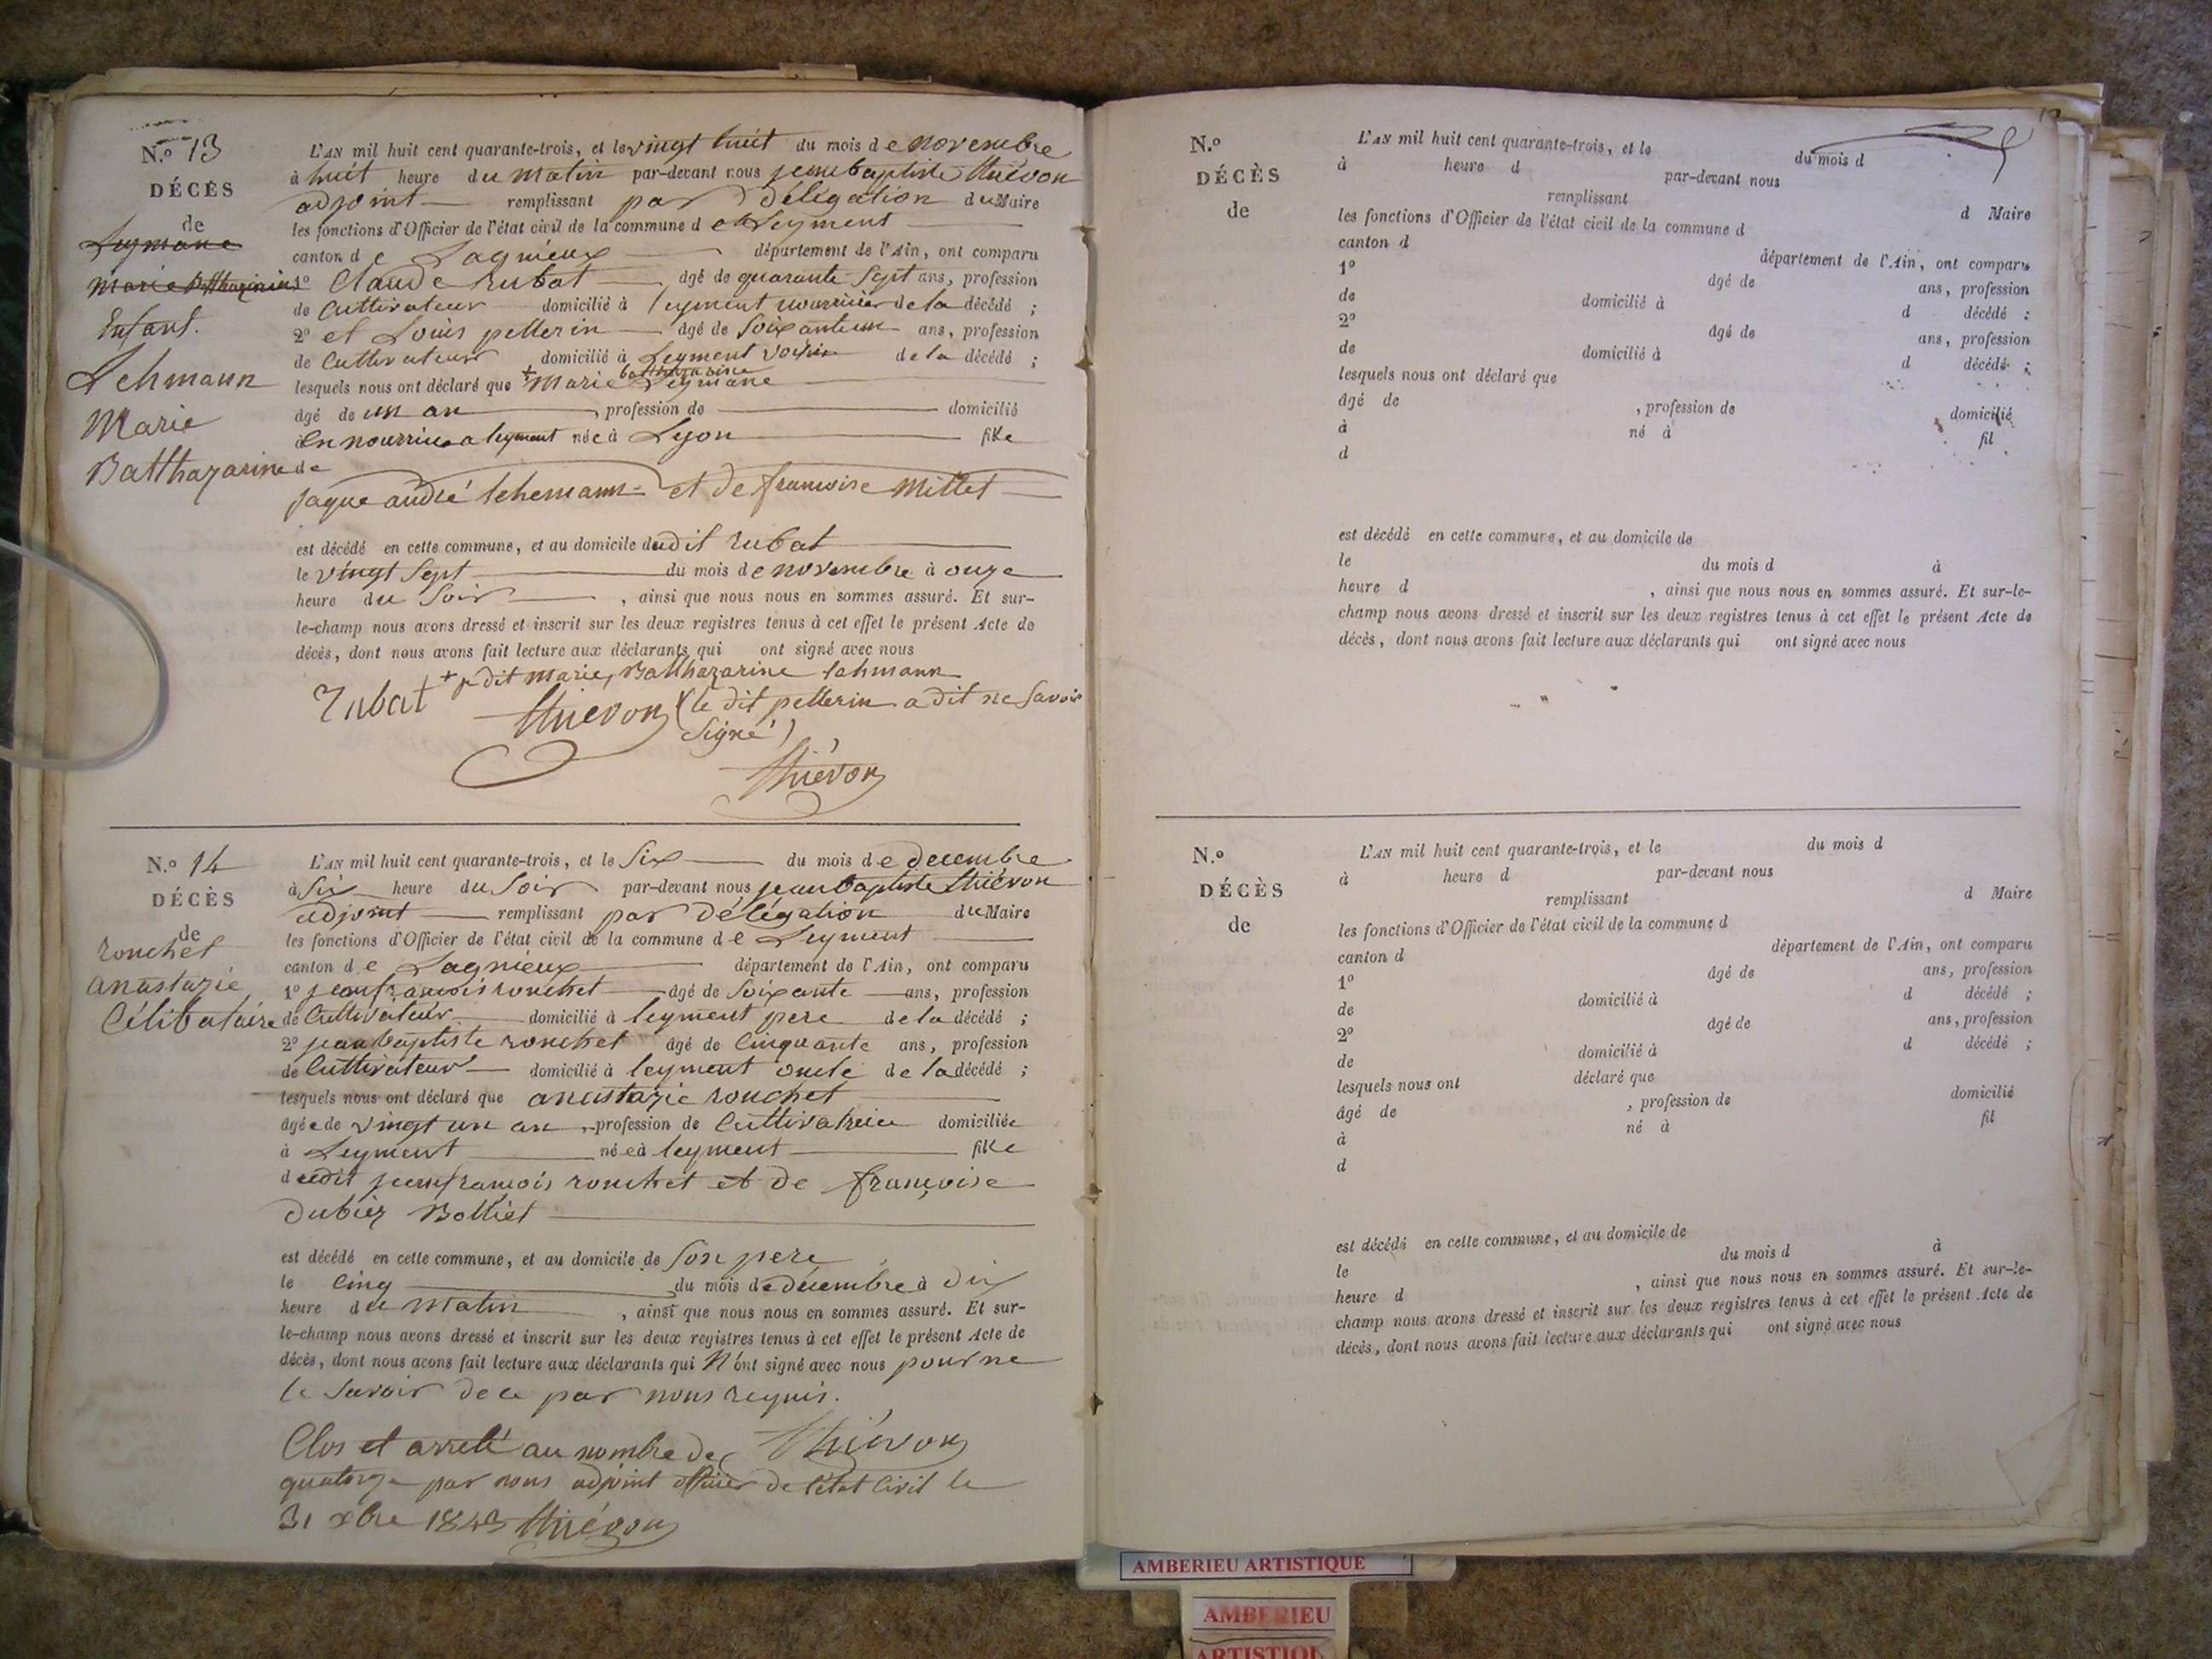 N.º 13
DÉCÈS
de
Leymane
Marie Balthazarine
Enfant.
Lehmann
Marie
Balthazarine
L'AN mil huit cent quarante-trois, et le vingt huit du mois de novembre
à huit heure du matin par-devant nous jean baptiste Thiévon
adjoint remplissant par Délégation du Maire
les fonctions d'Officier de l'état civil de la commune de Leyment
canton de Lagnieux département de l'Ain, ont comparu
1º Claude Rubat âgé de quarante sept ans, profession
de Cultivateur domicilié à leyment nourricier de la décédé ;
2º et Louis pellerin âgé de Soixante un ans, profession
de Cultivateur domicilié à Leyment voisin de la décédé ;
lesquels nous ont déclaré que + Marie balthazarine Leymane
âgé de un an , profession de domicilié
à en nourrice a leyment née à Lyon fille
de
jaque andré lehemann et de francoise Millet
est décédé en cette commune, et au domicile dudit rubat
le vingt Sept du mois de novembre à onze
heure du Soir , ainsi que nous nous en sommes assuré. Et sur-
le-champ nous avons dressé et inscrit sur les deux registres tenus à cet effet le présent Acte de
décès, dont nous avons fait lecture aux déclarants qui ont signé avec nous
+ dit marie, Balthazarine lehmann
Rubat Thievon (le dit pellerin a dit ne Savoir
Signé)
Thiévon
N.º 14
DÉCÈS
de
ronchet
anastazie
Célibataire
L'AN mil huit cent quarante-trois, et le Six du mois de decembre
à Six heure du Soir par-devant nous jean baptiste Thiévon
adjoint remplissant par Délégation du Maire
les fonctions d'Officier de l'état civil de la commune de Leyment
canton de Lagnieux département de l'Ain, ont comparu
1º jean francois ronchet âgé de Soixante ans, profession
de Cultivateur domicilié à leyment pere de la décédé ;
2º jean baptiste ronchet âgé de Cinquante ans, profession
de Cultivateur domicilié à leyment oncle de la décédé ;
lesquels nous ont déclaré que anastazie ronchet
âgée de vingt un an , profession de Cultivatrice domiciliée
à Leyment née à leyment fille
dudit jean francois ronchet et de françoise
Dubiez Bolliet
est décédé en cette commune, et au domicile de Son pere
le Cinq du mois de décembre à dix
heure du Matin , ainsi que nous nous en sommes assuré. Et sur-
le-champ nous avons dressé et inscrit sur les deux registres tenus à cet effet le présent Acte de
décès, dont nous avons fait lecture aux déclarants qui N'ont signé avec nous pour ne
le Savoir de ce par nous requis.
Clos et arreté au nombre de Thiévon
quatorze par nous adjoint officier de l'état Civil le
31 xbre 1843 Thiévon
N.º
DÉCÈS
de
L'AN mil huit cent quarante-trois, et le du mois d
à heure d par-devant nous
remplissant d Maire
les fonctions d'Officier de l'état civil de la commune d
canton d département de l'Ain, ont comparu
1º âgé de ans, profession
de domicilié à d décédé ;
2º âgé de ans, profession
de domicilié à d décédé ;
lesquels nous ont déclaré que
âgé de , profession de domicilié
à né à fil
d
est décédé en cette commune, et au domicile de
le du mois d à
heure d , ainsi que nous nous en sommes assuré. Et sur-le-
champ nous avons dressé et inscrit sur les deux registres tenus à cet effet le présent Acte de
décès, dont nous avons fait lecture aux déclarants qui ont signé avec nous
N.º
DÉCÈS
de
L'AN mil huit cent quarante-trois, et le du mois d
à heure d par-devant nous
remplissant d Maire
les fonctions d'Officier de l'état civil de la commune d
canton d département de l'Ain, ont comparu
1º âgé de ans, profession
de domicilié à d décédé ;
2º âgé de ans, profession
de domicilié à d décédé ;
lesquels nous ont déclaré que
âgé de , profession de domicilié
à né à fil
d
est décédé en cette commune, et au domicile de
le du mois d à
heure d , ainsi que nous nous en sommes assuré. Et sur-le-
champ nous avons dressé et inscrit sur les deux registres tenus à cet effet le présent Acte de
décès, dont nous avons fait lecture aux déclarants qui ont signé avec nous
AMBERIEU ARTISTIQUE
AMBERIEU
ARTISTIQU